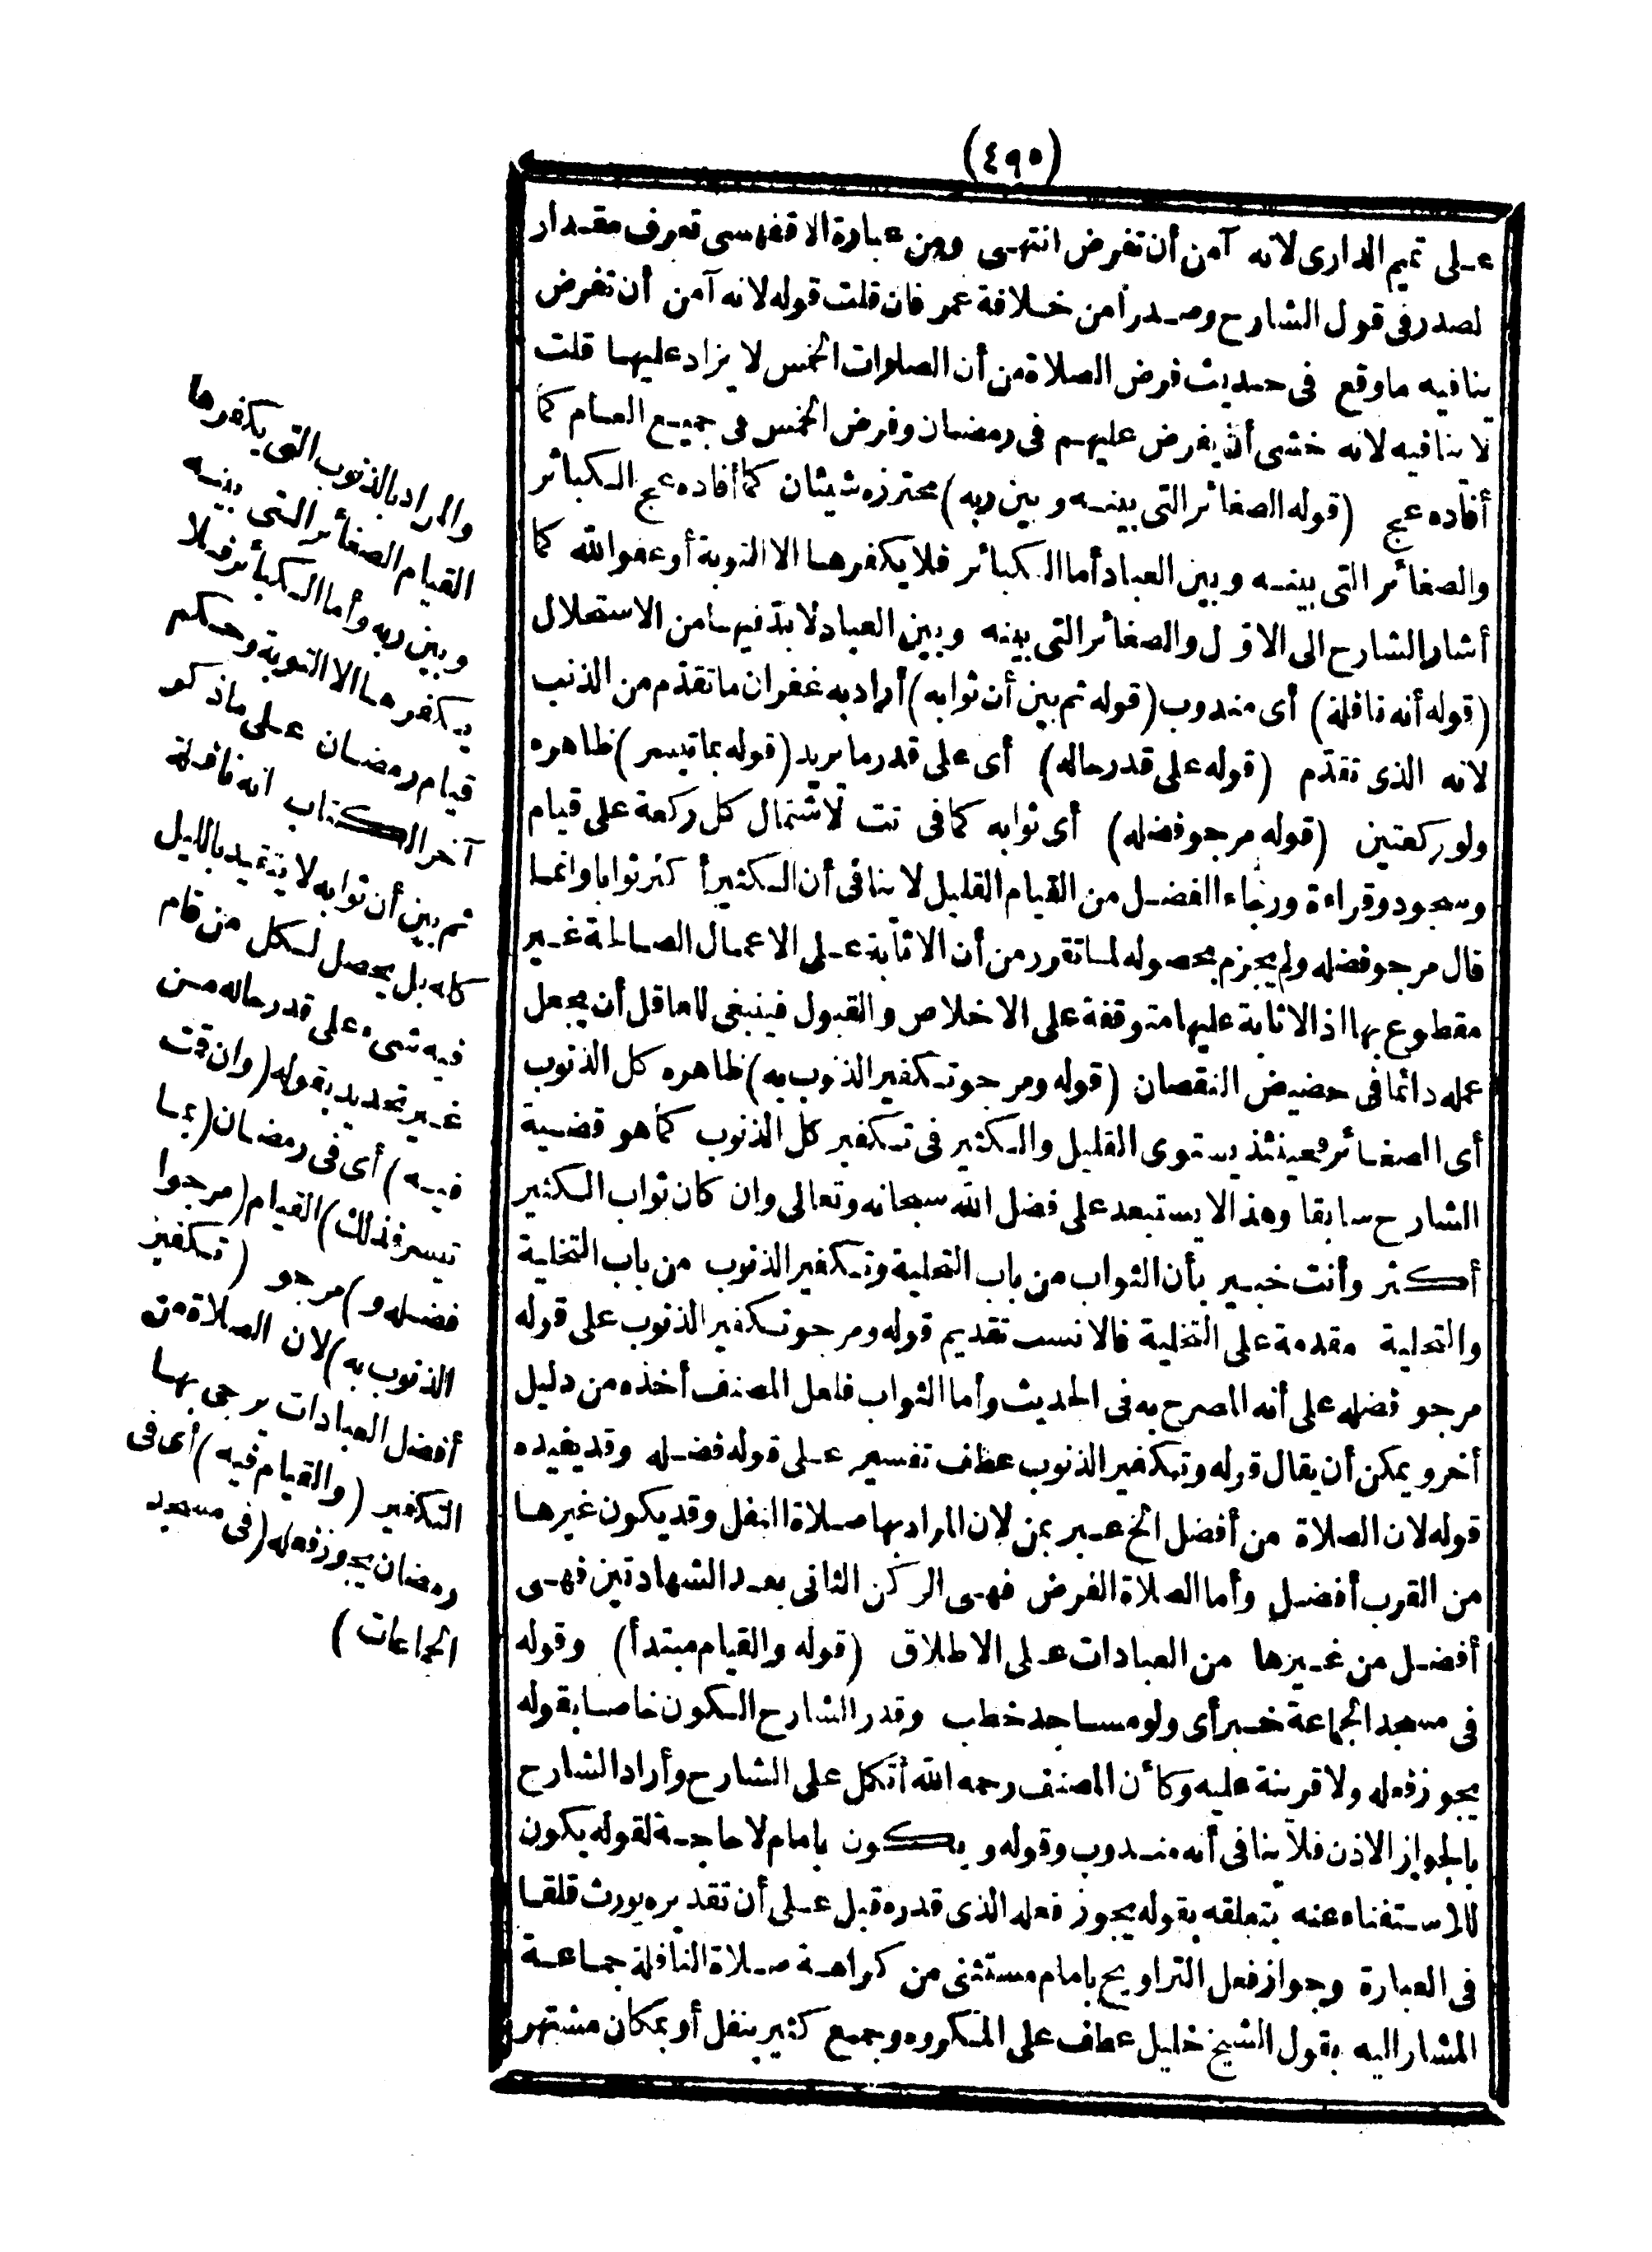 (٤٩٥)
على تميم الدارى لانه آمن أن تفرض انتهى ومن عبارة الاقفهسى تعرف مقدار
لصدر فى قول الشارح وصدرا من خلافة عمر فان قلت قوله لانه آمن أن تفرض
ينافيه ما وقع فى حديث فرض الصلاة من أن الصلوات الخمس لا يزاد عليها قلت
لا ينافيه لانه خشى أن يفرض عليهم فى رمضان وفرض الخمس فى جميع العام كما
أفاده عج (قوله الصغائر التى بينه وبين ربه) محترزه شيئان كما أفاده عج الكبائر
والصغائر التى بينه وبين العباد أما الكبائر فلا يكفرها الا التوبة أو عفو الله كما
أشار الشارح الى الاول والصغائر التى بينه وبين العباد لابد فيها من الاستحلال
(قوله أنه نافلة) أى مندوب (قوله ثم بين أن ثوابه) أراد به غفران ما تقدم من الذنب
لانه الذى تقدم (قوله على قدر حاله) أى على قدر ما يريد (قوله بما تيسر) ظاهره
ولو ركعتين (قوله مرجو فضله) أى ثوابه كما فى تت لاشتمال كل ركعة على قيام
وسجود وقراءة ورجاء الفضل من القيام القليل لا ينافى أن الكثير أكثر ثوابا وانما
قال مرجو فضله ولم يجزم بحصوله لما تقرر من أن الاثابة على الاعمال الصالحة غير
مقطوع بها اذ الاثابة عليها متوقفة على الاخلاص والقبول فينبغى للعاقل أن يجعل
عمله دائما فى حضيض النقصان (قوله ومرجو تكفير الذنوب به) ظاهره كل الذنوب
أى الصغائر وحينئذ يستوى القليل والكثير فى تكفير كل الذنوب كما هو قضية
الشارح سابقا وهذا لا يستبعد على فضل الله سبحانه وتعالى وان كان ثواب الكثير
أكثر وأنت خبير بأن الثواب من باب التحلية وتكفير الذنوب من باب التخلية
والتحلية مقدمة على التخلية فالانسب تقديم قوله ومرجو تكفير الذنوب على قوله
مرجو فضله على أنه المصرح به فى الحديث وأما الثواب فلعل المصنف أخذه من دليل
آخر ويمكن أن يقال قوله وتكفير الذنوب عطف تفسير على قوله فضله وقد يفيده
قوله لان الصلاة من أفضل الخ عبر بمن لان المراد بها صلاة النفل وقد يكون غيرها
من القرب أفضل وأما الصلاة الفرض فهى الركن الثانى بعد الشهادتين فهى
أفضل من غيرها من العبادات على الاطلاق (قوله والقيام مبتدأ) وقوله
فى مسجد الجماعة خبر أى ولو مساجد خطب وقدر الشارح الكون خاصا بقوله
يجوز فعله ولا قرينة عليه وكأن المصنف رحمه الله أتكل على الشارح وأراد الشارح
بالجواز الاذن فلا ينافى أنه مندوب وقوله ويكون بامام لا حاجة لقوله يكون
للاستغناء عنه بتعلقه بقوله يجوز فعله الذى قدره قبل على أن تقديره يورث قلقا
فى العبارة وجواز فعل التراويح بامام مستثنى من كراهة صلاة النافلة جماعة
المشار اليه بقول الشيخ خليل عطف على المكروه وجمع كثير بنفل أو بمكان مشتهر
والمراد بالذنوب التى يكفرها
القيام الصغائر التى بينه
وبين ربه وأما الكبائر فلا
يكفرها الا التوبة وحكم
قيام رمضان على ما ذكر
آخر الكتاب انه نافلة
ثم بين أن ثوابه لا يتقيد بالليل
كله بل يحصل لكل من قام
فيه شىء على قدر حاله من
غير تحديد بقوله (وان قمت
فيه) أى فى رمضان (بما
تيسر فذلك) القيام (مرجوا
فضله و) مرجو (تكفير
الذنوب به) لان الصلاة من
أفضل العبادات يرجى بها
التكفير (والقيام فيه) أى فى
رمضان يجوز فعله (فى مسجد
الجماعات)